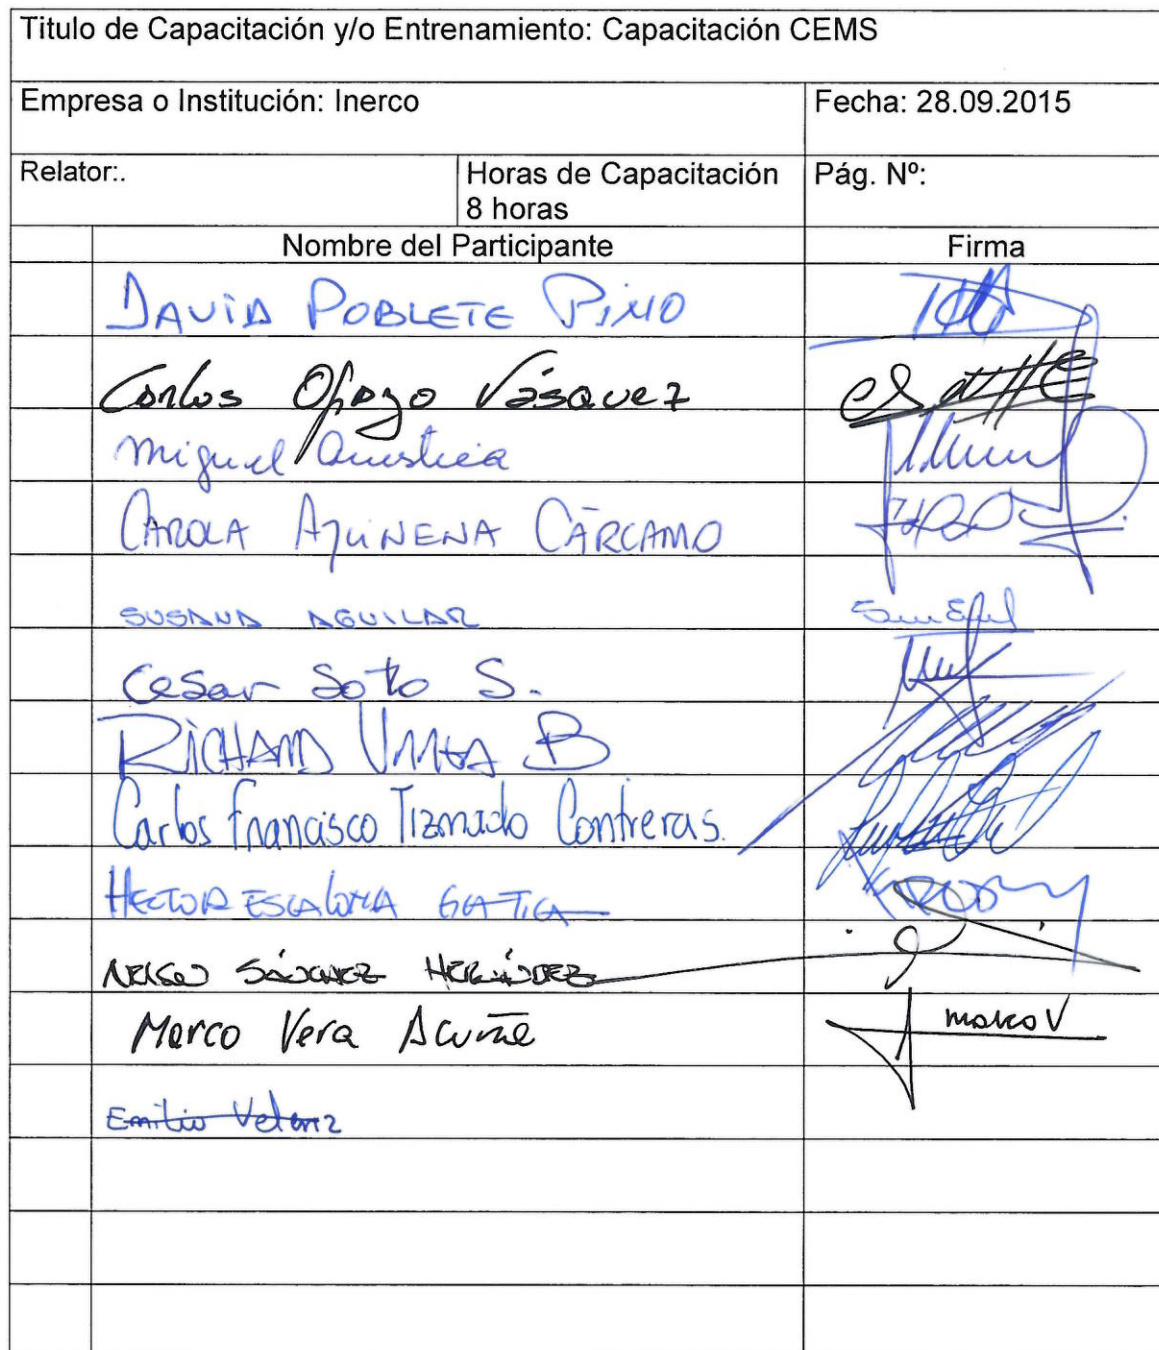 Titulo de Capacitación y/o Entrenamiento: Capacitación CEMS
Empresa o Institución: Inerco Fecha: 28.09.2015
Relator:. Horas de Capacitación Pág. Nº:
8 horas
Nombre del Participante Firma
DAVID POBLETE PINO
Carlos Opazo Vásquez
Miguel
CAROLA AZUNENA CÁRCAMO
SUSANA AGUILAR
Cesar Soto S.
RICHARD B
Carlos Francisco Tiznado Contreras.
HECTOR ESCALONA GATICA
NELSON SÁNCHEZ HERNÁNDEZ
Marco Vera Acuña marcoV
Emilio